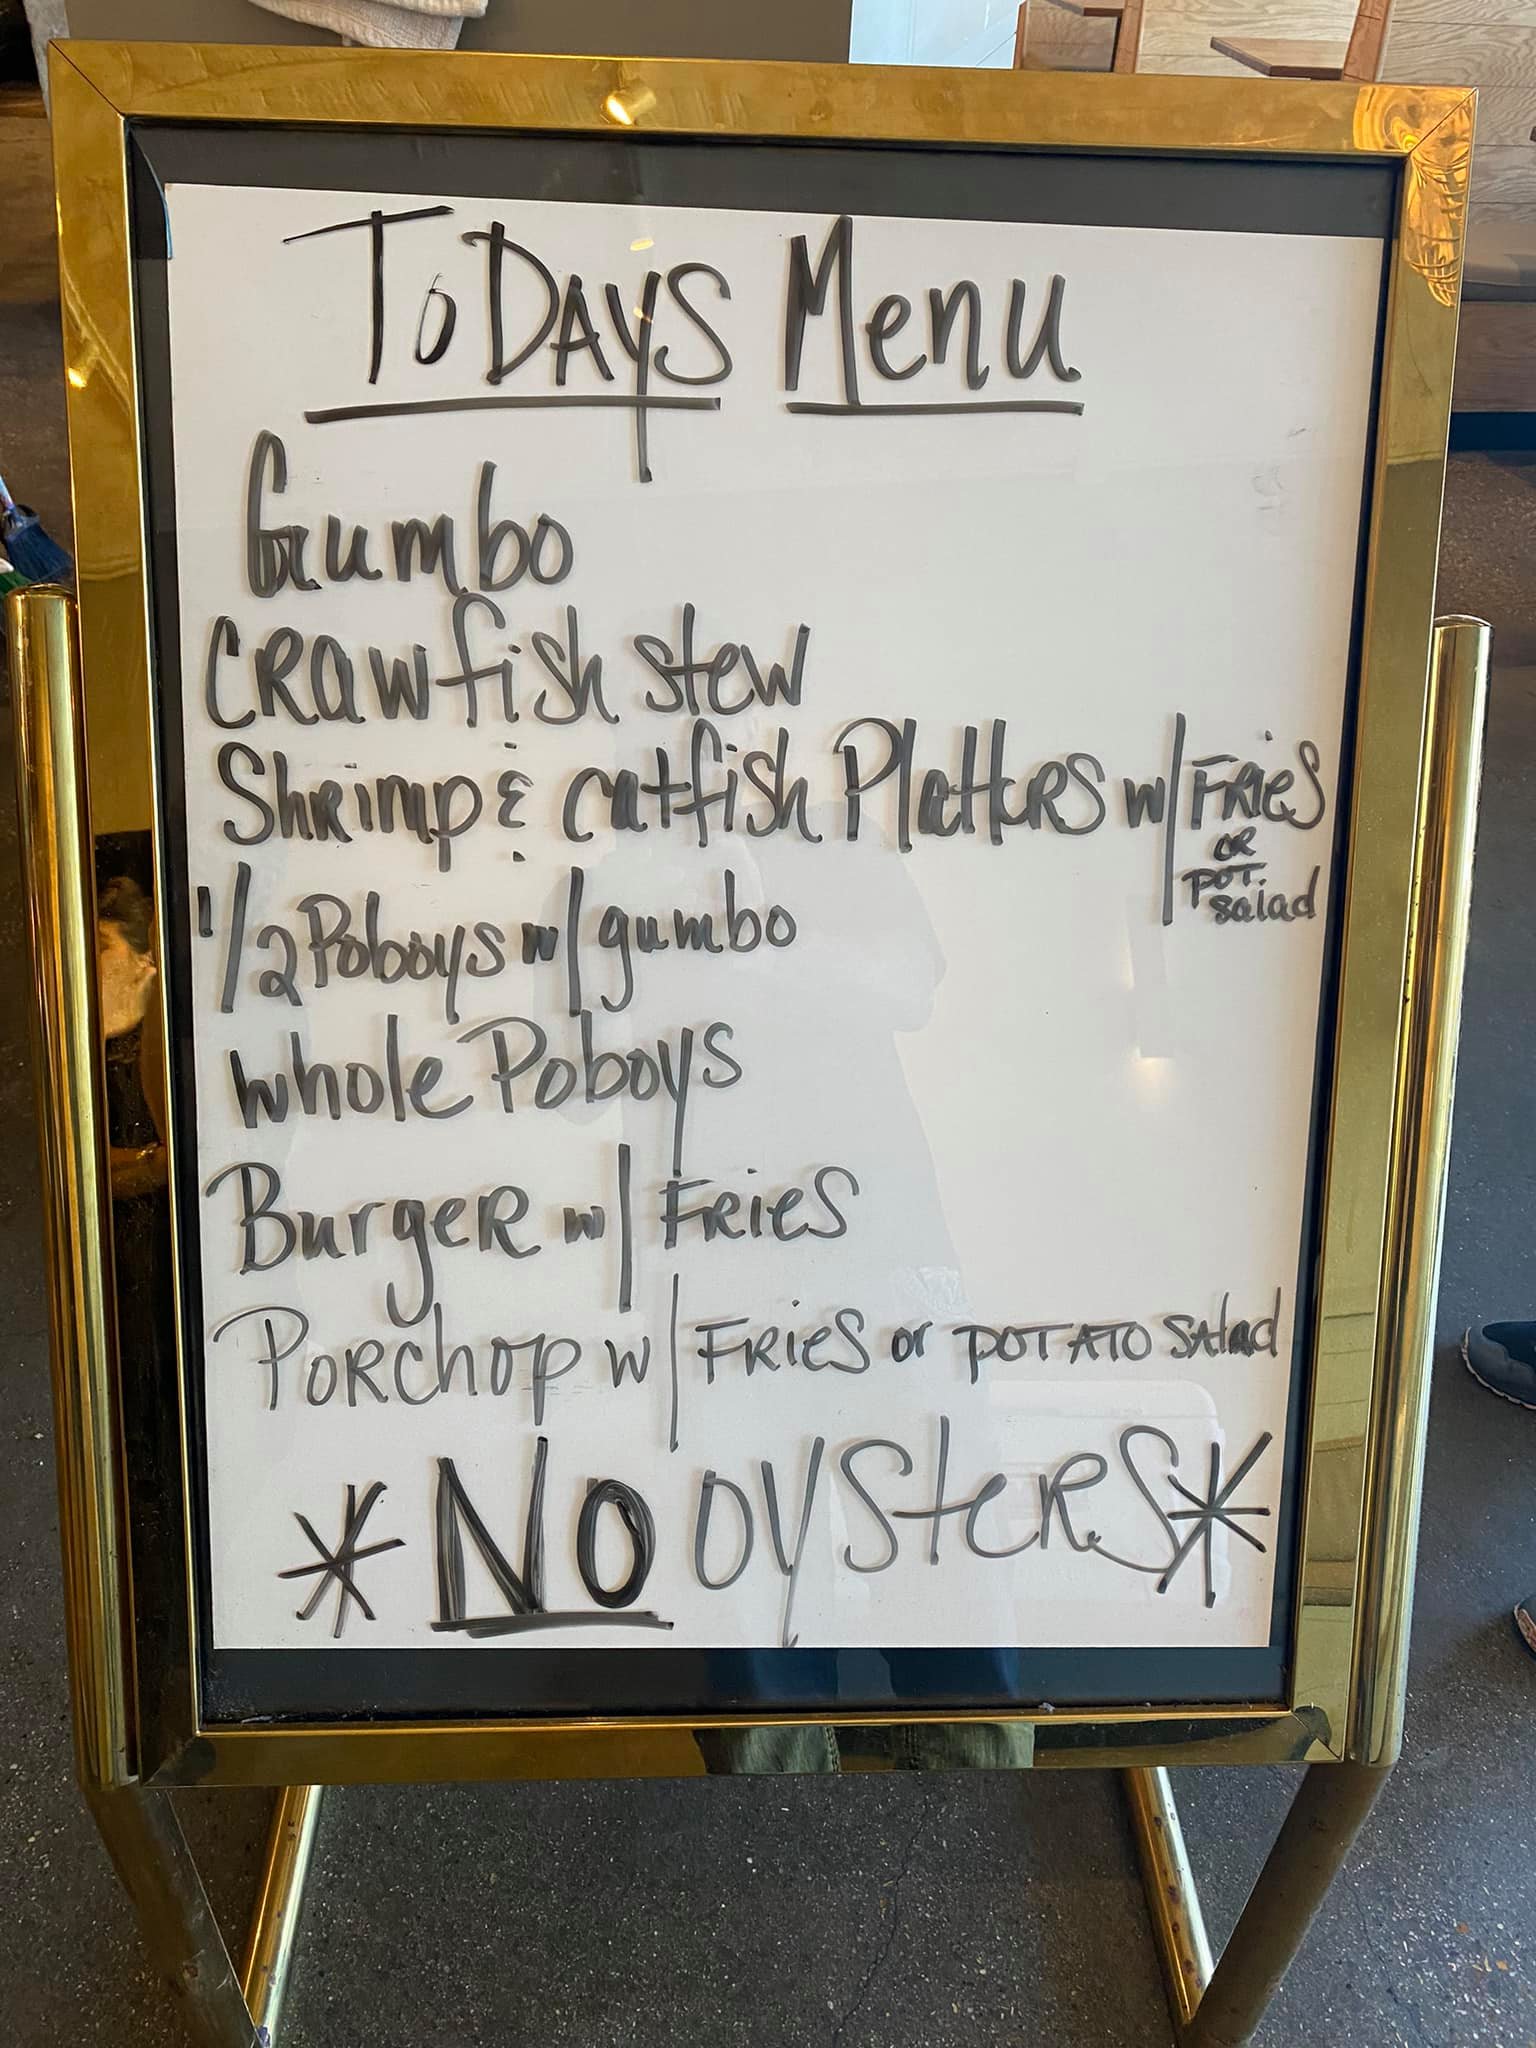 ToDAyS Menu
Gumbo
CRawfish stew
Shrimp & catfish Platters w/ FRieS
OR
POT.
salad
1/2 Poboys w/ gumbo
whole Poboys
BurgeR w/ FRieS
PoRchop w/ FRieS or POTATO Salad
* No oysteRS *